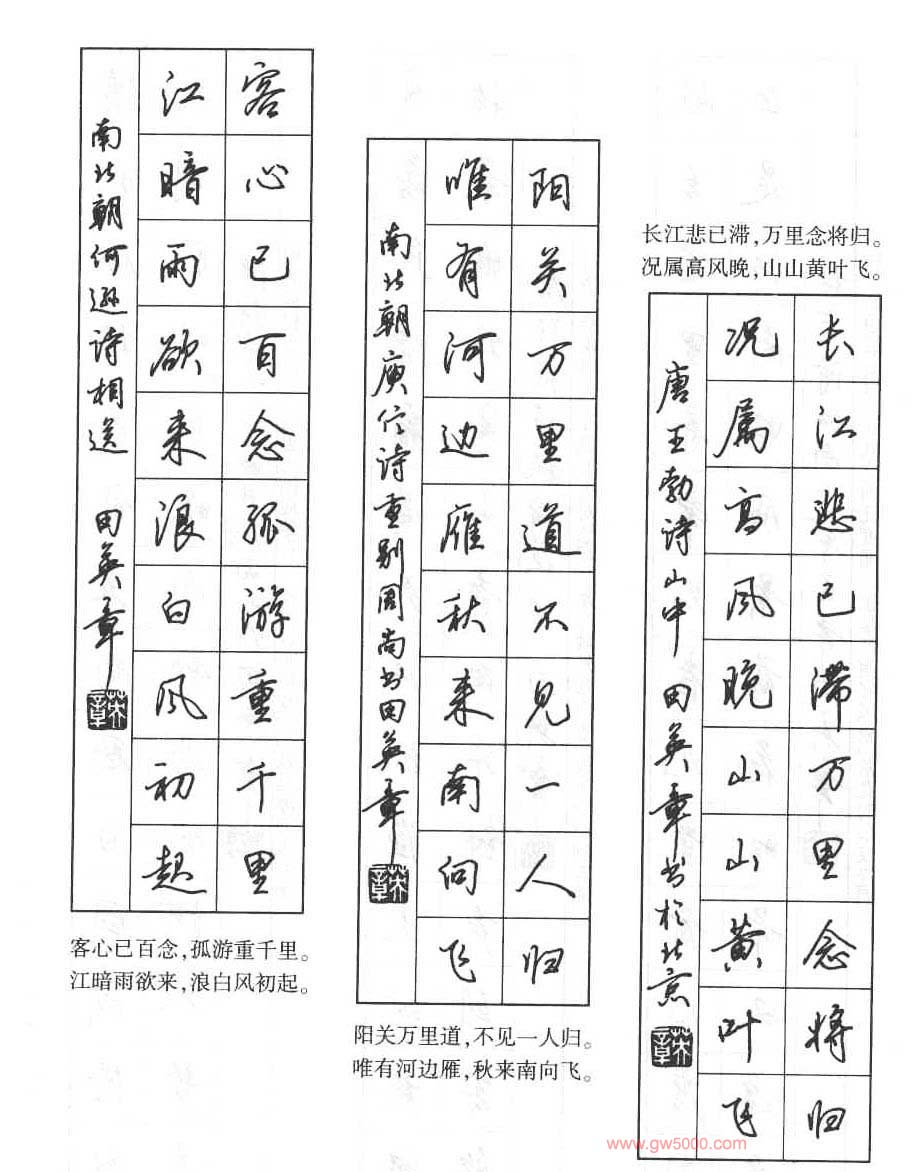 长江悲已滞，万里念将归。
况属高风晚，山山黄叶飞。
长江悲已滞万里念将归
况属高风晚山山黄叶飞
唐王勃诗山中 田英章书於北京
英章
阳关万里道不见一人归
唯有河边雁秋来南向飞
南北朝庾信诗重别周尚书田英章
英章
阳关万里道，不见一人归。
唯有河边雁，秋来南向飞。
客心已百念孤游重千里
江暗雨欲来浪白风初起
南北朝何逊诗相送 田英章
英章
客心已百念，孤游重千里。
江暗雨欲来，浪白风初起。
www.gw5000.com